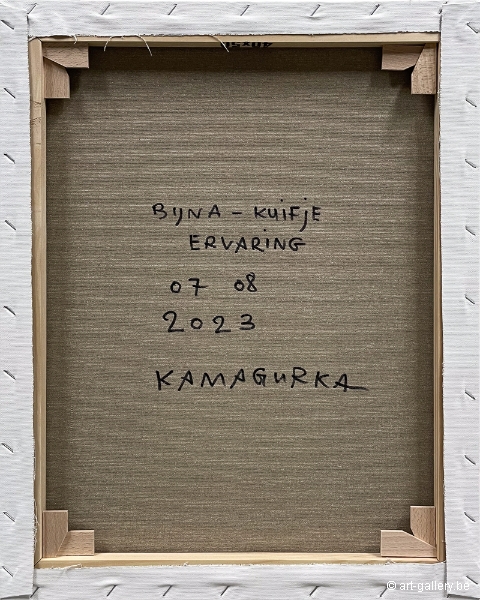 40x50
BIJNA - KUIFJE
ERVARING
07 08
2023
KAMAGURKA
© art-gallery.be